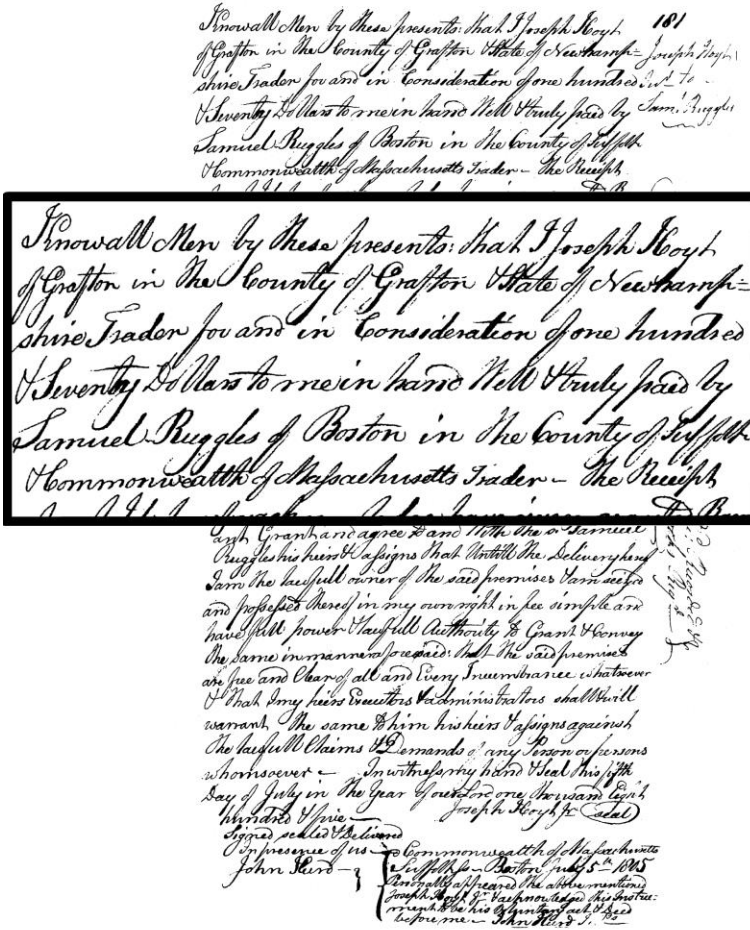 Know all Men by these presents: that I Joseph Hoyt
of Grafton in the County of Grafton & State of Newhamp=
shire Trader for and in Consideration of one hundred
& Seventy Dollars to me in hand Well & truly paid by
Samuel Ruggles of Boston in the County of Suffolk
& Commonwealth of Massachusetts Trader - The Receipt
181
Joseph Hoyt
to
Saml. Ruggles
Know all Men by these presents: that I Joseph Hoyt
of Grafton in the County of Grafton & State of Newhamp=
shire Trader for and in Consideration of one hundred
& Seventy Dollars to me in hand Well & truly paid by
Samuel Ruggles of Boston in the County of Suffolk
& Commonwealth of Massachusetts Trader - The Receipt
ant Grant and agree to and With the sd Samuel
Ruggles his heirs & assigns that Untill the Delivery hereof
I am the lawfull owner of the said premises & am seized
and possessed thereof in my own right in fee simple and
have full power & lawfull Authority to Grant & Convey
the same in manner aforesaid: that the said premises
are free and Clear of all and Every Incumbrance whatsoever
& that I my heirs Executors & administrators shall & will
warrant the same to him his heirs & assigns against
the lawfull Claims & Demands of any Person or persons
whomsoever - In witness my hand & Seal this fifth
Day of July in the Year of our Lord one thousand Eight
hundred & five - Joseph Hoyt Jr (seal)
Signed sealed & Delivered
In presence of us -
John Hurd -
Commonwealth of Massachusetts
Suffolk ss - Boston July 5th 1805
Personally appeared the above mentioned
Joseph Hoyt Jr & acknowledged this Instru=
ment to be his voluntary act & Deed
before me - John Hurd J. Ps